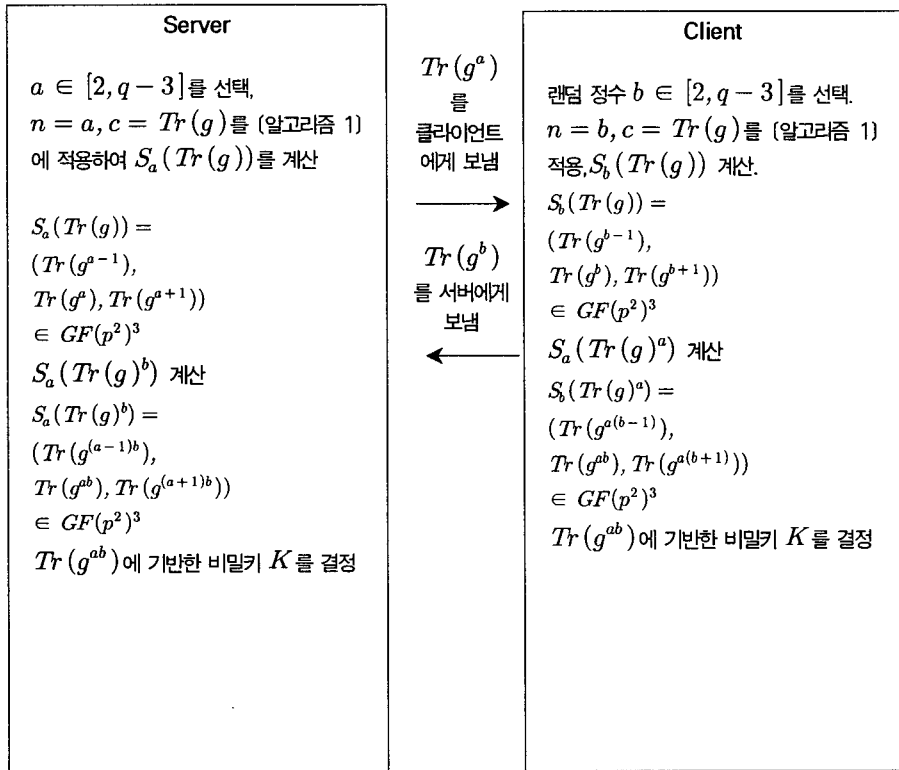 Server
a ∈ [2, q − 3]를 선택,
n = a, c = Tr(g)를 [알고리즘 1]
에 적용하여 S_a(Tr(g))를 계산
S_a(Tr(g)) =
(Tr(g^{a−1}),
Tr(g^a), Tr(g^{a+1}))
∈ GF(p^2)^3
S_a(Tr(g)^b) 계산
S_a(Tr(g)^b) =
(Tr(g^{(a−1)b}),
Tr(g^{ab}), Tr(g^{(a+1)b}))
∈ GF(p^2)^3
Tr(g^{ab})에 기반한 비밀키 K를 결정
Tr(g^a)
를
클라이언트
에게 보냄
Tr(g^b)
를 서버에게
보냄
Client
랜덤 정수 b ∈ [2, q − 3]를 선택.
n = b, c = Tr(g)를 [알고리즘 1]
적용, S_b(Tr(g)) 계산.
S_b(Tr(g)) =
(Tr(g^{b−1}),
Tr(g^b), Tr(g^{b+1}))
∈ GF(p^2)^3
S_a(Tr(g)^a) 계산
S_b(Tr(g)^a) =
(Tr(g^{a(b−1)}),
Tr(g^{ab}), Tr(g^{a(b+1)}))
∈ GF(p^2)^3
Tr(g^{ab})에 기반한 비밀키 K를 결정